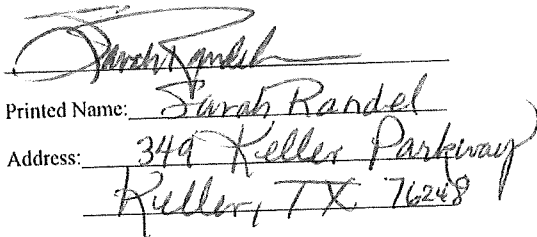 Sarah Randel
Printed Name: Sarah Randel
Address: 349 Keller Parkway
Keller, TX 76248